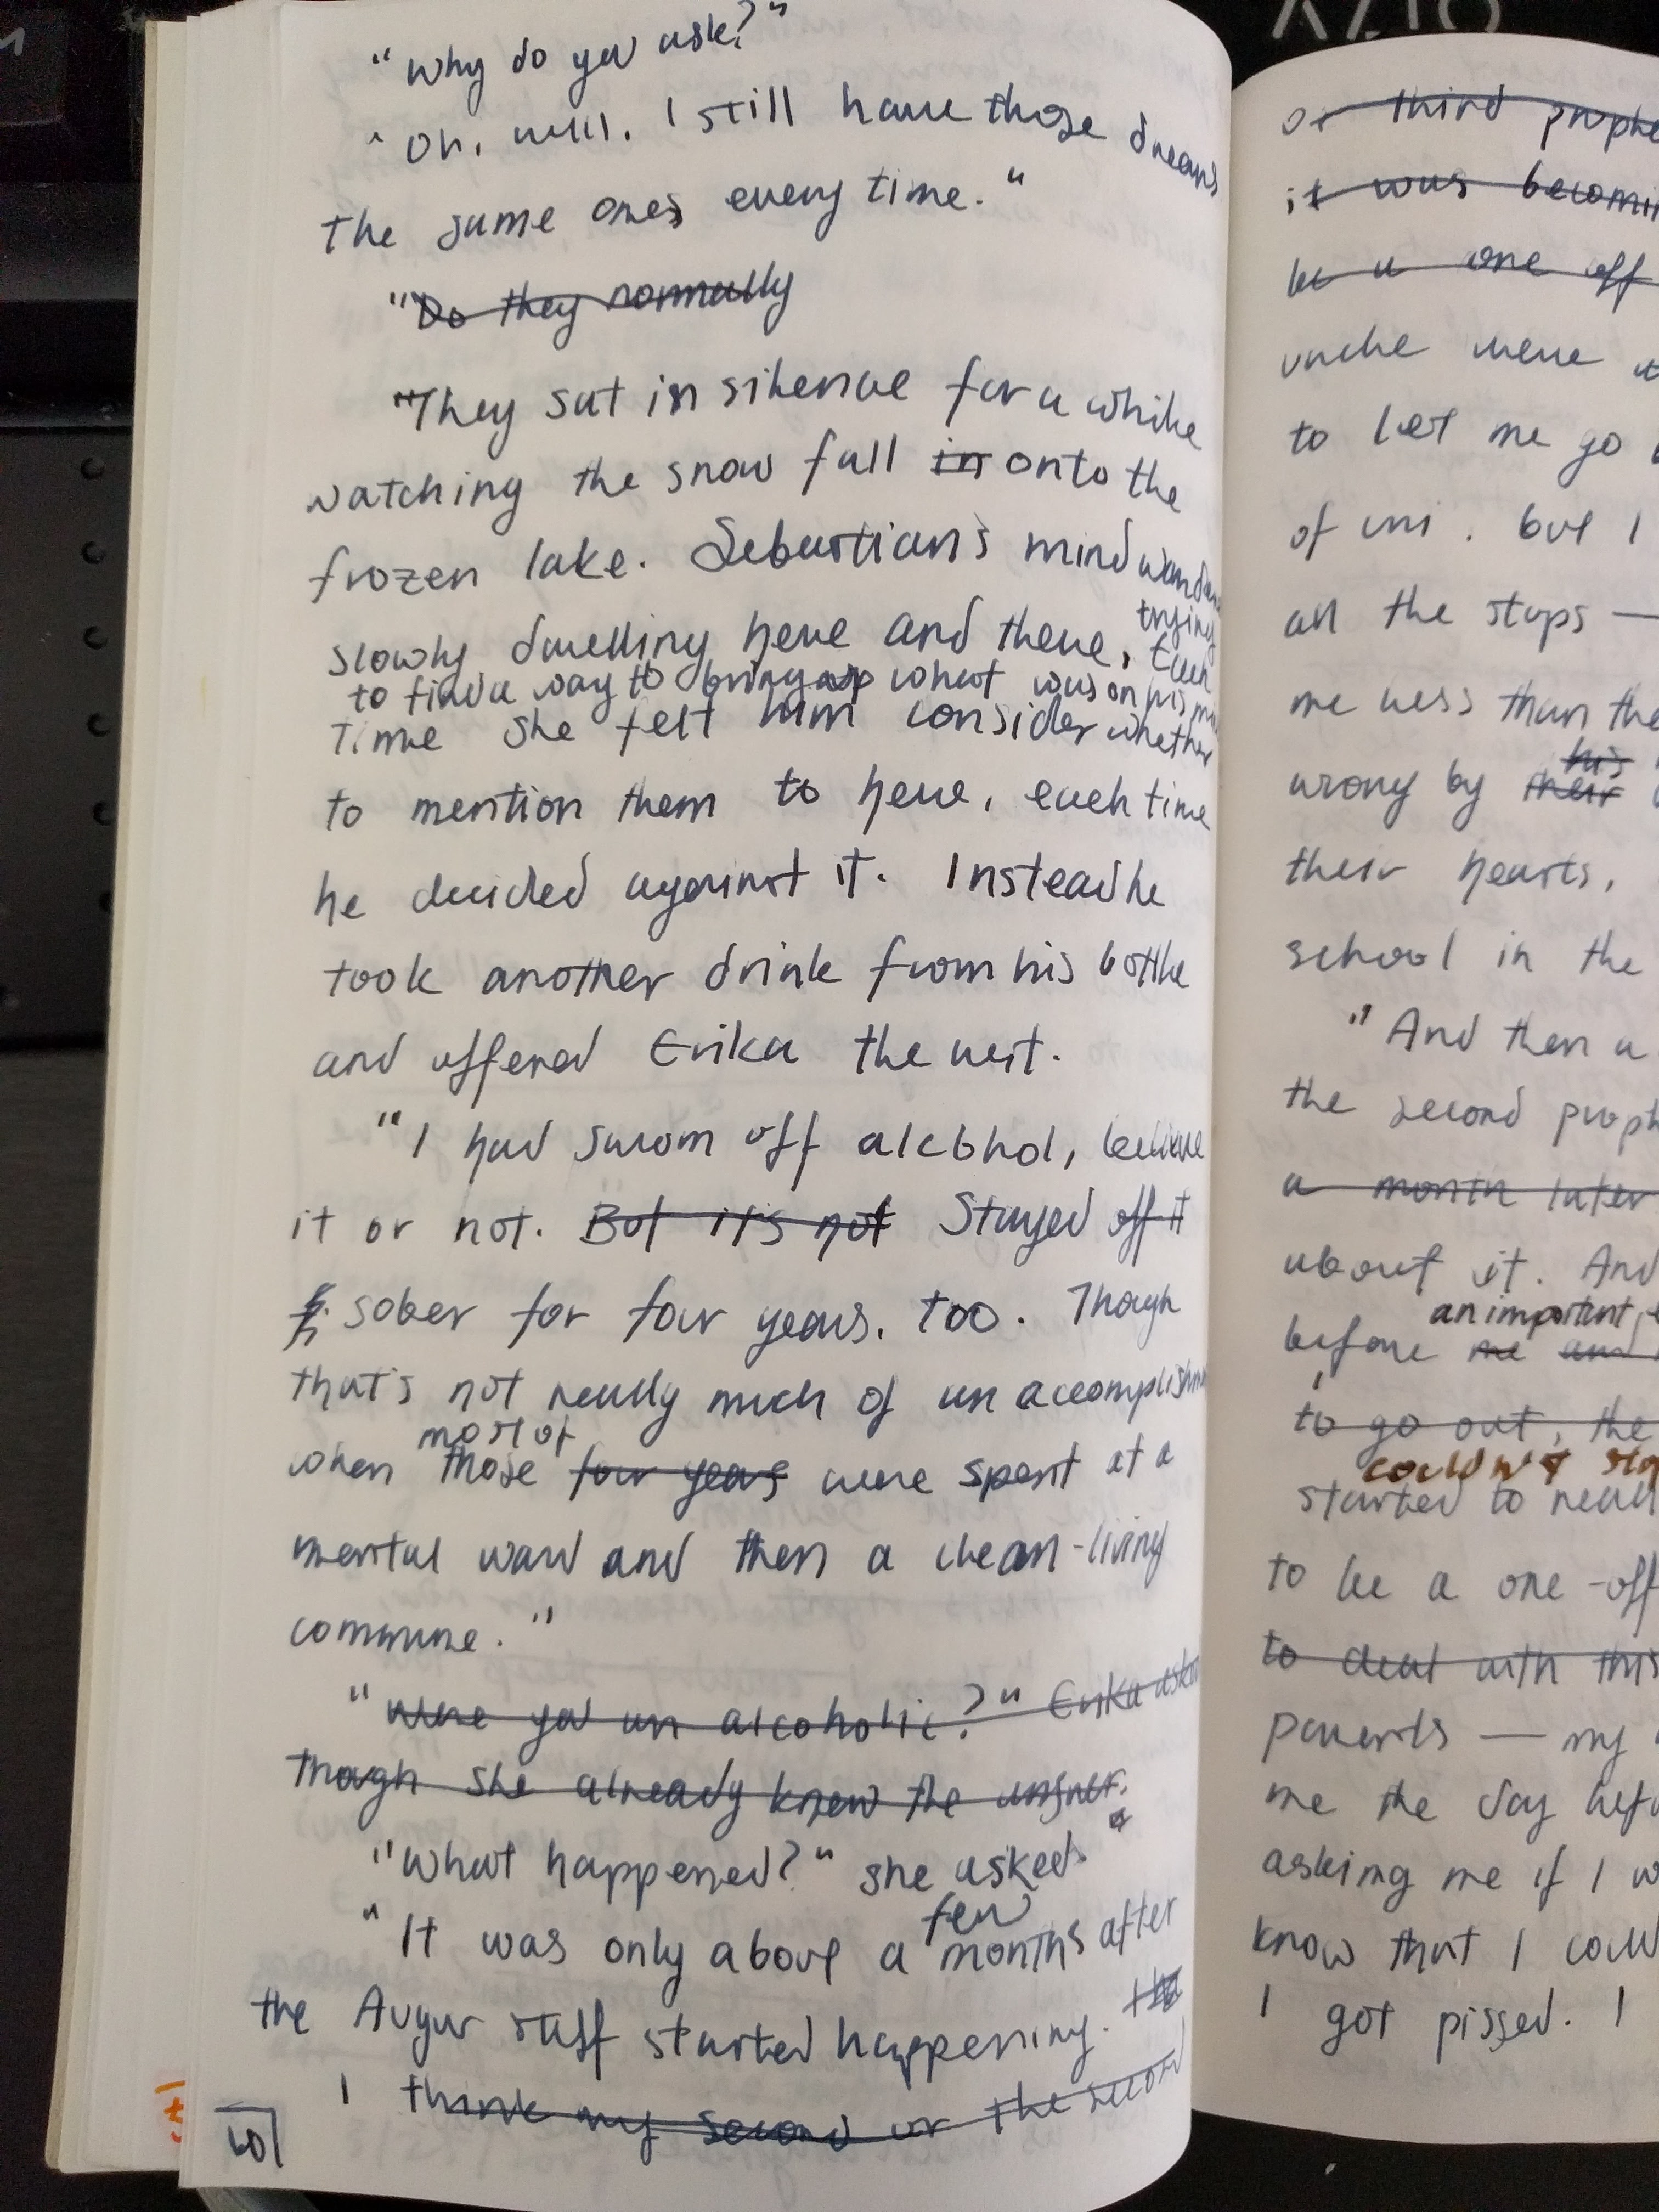 "Why do you ask?"
"Oh, well. I still have those dreams
the same ones every time."
"Do they normally
"They sat in silence for a while
watching the snow fall in onto the
frozen lake. Sebastian's mind
slowly dwelling here and there, trying
to find a way to bring up what was on his
Each
time she felt him consider whether
to mention them to her, each time
he decided against it. Instead he
took another drink from his bottle
and offered Erika the rest.
"I had sworn off alcohol, believe
it or not. But it's not Stayed off it
sober for four years, too. Though
that's not really much of an
most of
when those four years were spent at a
mental ward and then a clean-living
commune."
"Were you an alcoholic?" Erika asked
though she already knew the answer.
"What happened?" she asked.
few
"It was only about a months after
the Augur stuff started happening. the
I think my second or the second
60
or third
it was
be a one off
uncle were
to let me go
of uni. but I
all the stops —
me less than the
his
wrong by their
their hearts,
school in the
"And then a
the second
a month later
about it. And
an important
before me and
to go out, the
couldn't
started to
to be a one-off
to deal with this
parents — my
me the day
asking me if I
know that I
I got pissed. I